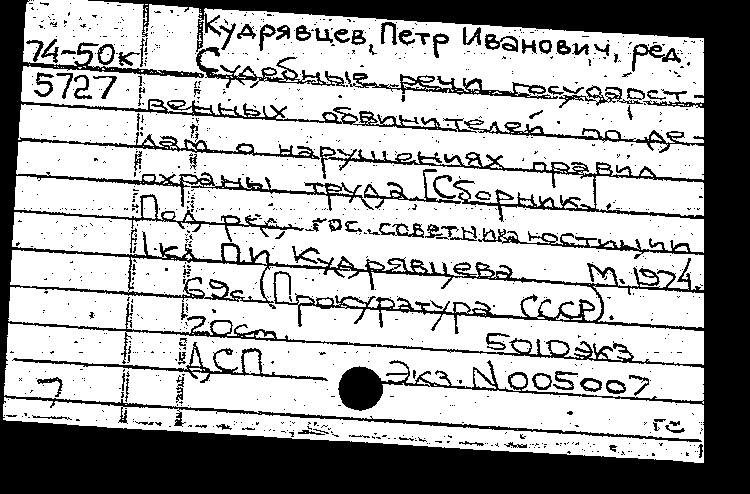 Кудрявцев, Петр Иванович, ред.
74-50к
Судебные речи государст-
5727
венных обвинителей по де-
лам о нарушениях правил
охраны труда. [Сборник].
Под ред. гос. советника юстиции
1 кл. П.И. Кудрявцева. М. 1974.
69с. (Прокуратура СССР).
20см. 5010экз.
ДСП. Экз. N 005007
7